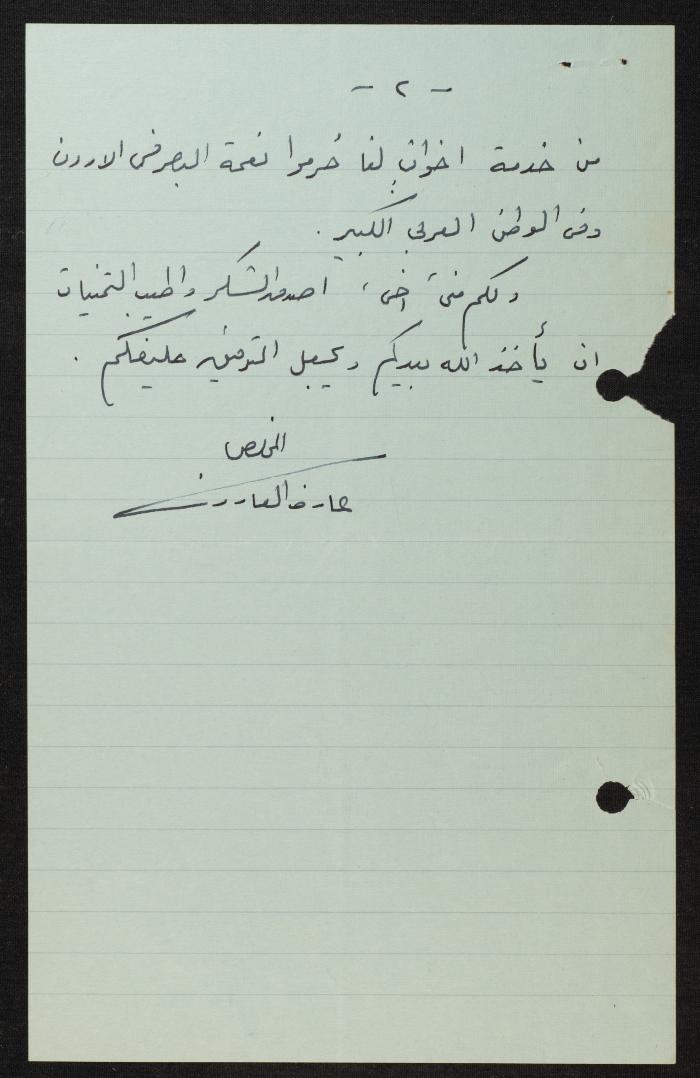 - ٢ -
من خدمة اخوانٍ لنا حُرموا نعمة البصر في الاردن
وفي الوطن العربي الكبير .
ولكم مني ، أخي ، اصدق الشكر واطيب التمنيات
ان يأخذ الله بيدكم ويجعل التوفيق حليفكم .
المخلص
عارف العارف